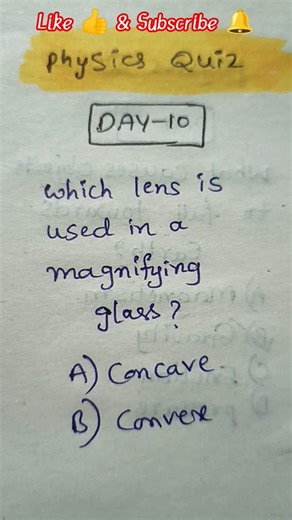 Like 👍 & Subscribe 🔔
Physics Quiz
DAY-10
which lens is
used in a
magnifying
glass?
A) Concave
B) Convex